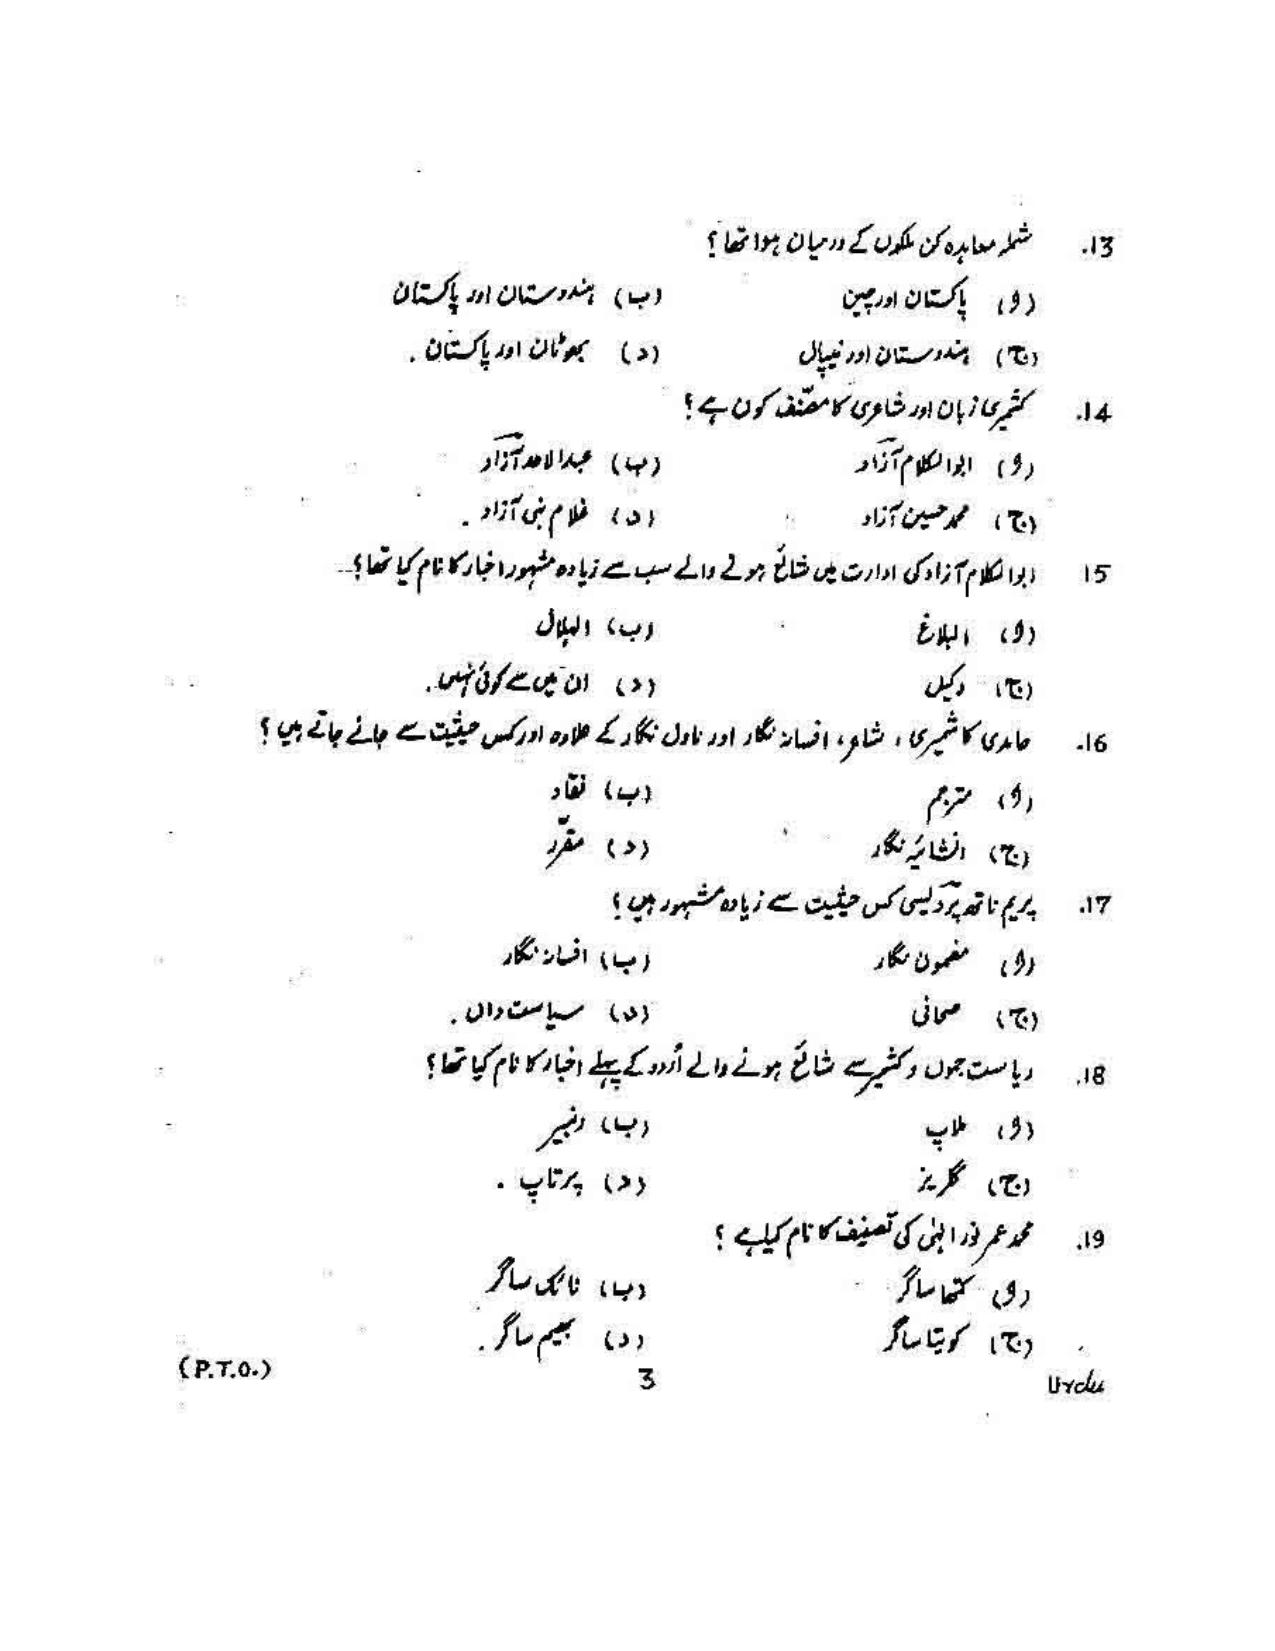 13. شملہ معاہدہ کن ملکوں کے درمیان ہوا تھا؟
(و) پاکستان اور چین (ب) ہندوستان اور پاکستان
(ج) ہندوستان اور نیپال (د) بھوٹان اور پاکستان .
14. کشمیری زبان اور شاعری کا مصنّف کون ہے؟
(و) ابوالکلام آزاد (ب) عبدالاحد آزاد
(ج) محمد حسین آزاد (د) غلام نبی آزاد .
15 ابوالکلام آزاد کی ادارت میں شائع ہونے والے سب سے زیادہ مشہور اخبار کا نام کیا تھا؟
(و) البلاغ (ب) الہلال
(ج) وکیل (د) ان میں سے کوئی نہیں .
16. حامدی کاشمیری ، شاعر، افسانہ نگار اور ناول نگار کے علاوہ اور کس حیثیت سے جانے جاتے ہیں؟
(و) مترجم (ب) نقّاد
(ج) انشائیہ نگار (د) مقرّر
17. پریم ناتھ پردیسی کس حیثیت سے زیادہ مشہور ہیں؟
(و) مضمون نگار (ب) افسانہ نگار
(ج) صحافی (د) سیاست داں .
18. ریاست جموں و کشمیر سے شائع ہونے والے اُردو کے پہلے اخبار کا نام کیا تھا؟
(و) ملاپ (ب) رنبیر
(ج) گلریز (د) پرتاپ .
19. محمد عمر نور الہٰی کی تصنیف کا نام کیا ہے؟
(و) کتھا ساگر (ب) ناٹک ساگر
(ج) کویتا ساگر (د) بھیم ساگر .
(P.T.O.) 3 Urdu